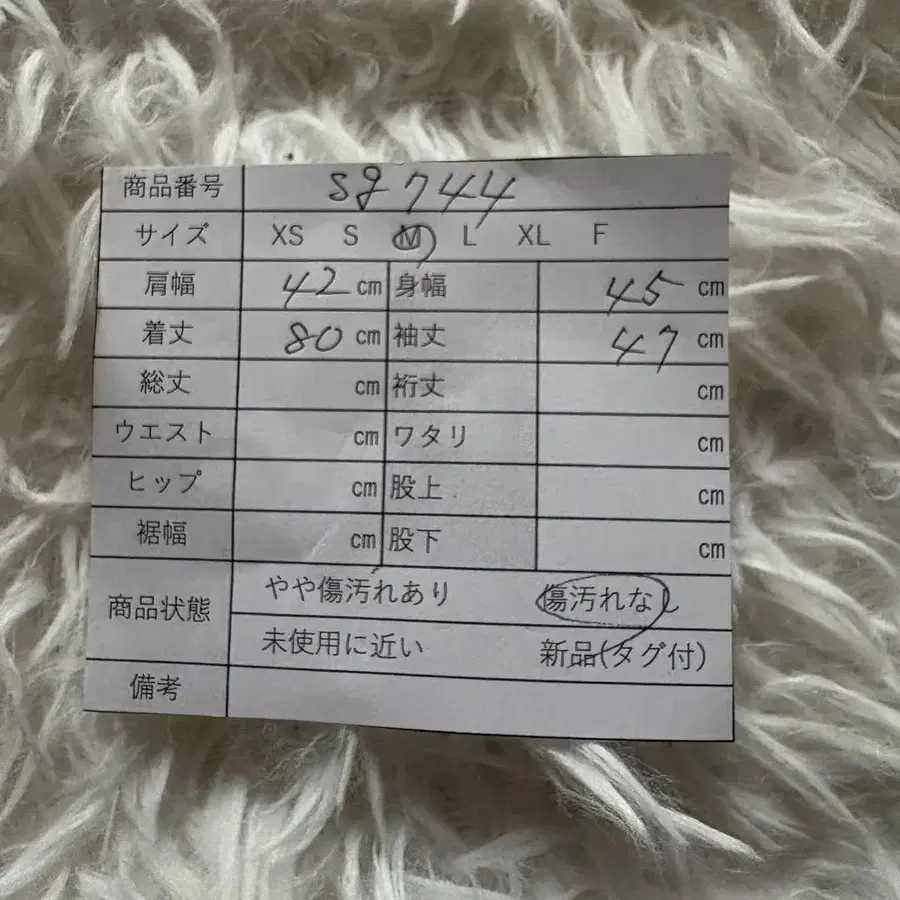 商品番号 sg744
サイズ XS S M L XL F
肩幅 42 cm 身幅 45 cm
着丈 80 cm 袖丈 47 cm
総丈 cm 裄丈 cm
ウエスト cm ワタリ cm
ヒップ cm 股上 cm
裾幅 cm 股下 cm
商品状態 やや傷汚れあり 傷汚れなし
未使用に近い 新品(タグ付)
備考